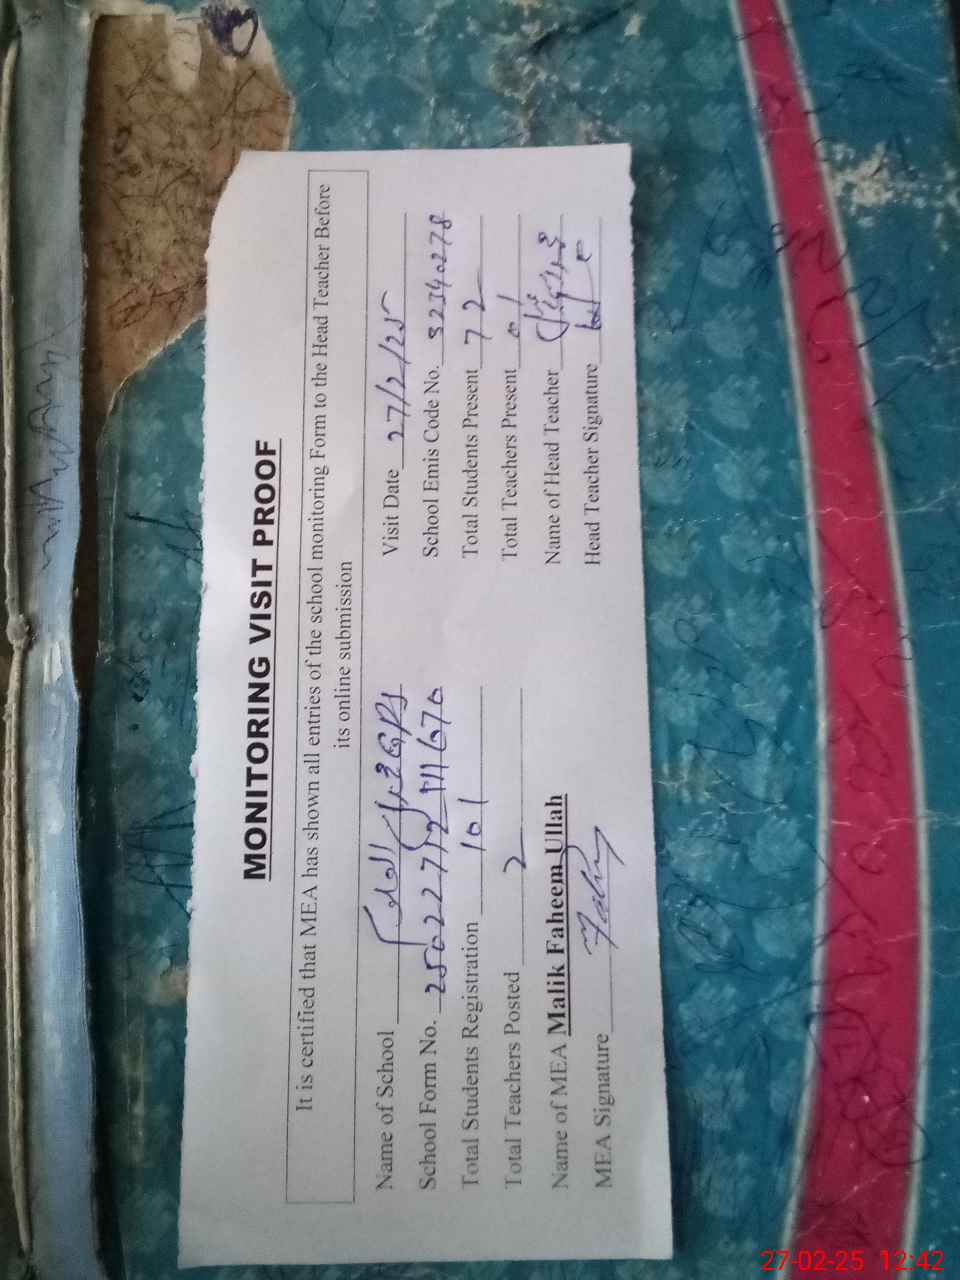 MONITORING VISIT PROOF
It is certified that MEA has shown all entries of the school monitoring Form to the Head Teacher Before
its online submission
Name of School GPS
Visit Date 27/2/25
School Form No.
School Emis Code No. 32340278
Total Students Registration 101
Total Students Present 72
Total Teachers Posted 2
Total Teachers Present 01
Name of MEA Malik Faheem Ullah
Name of Head Teacher
MEA Signature
Head Teacher Signature
27-02-25 12:42